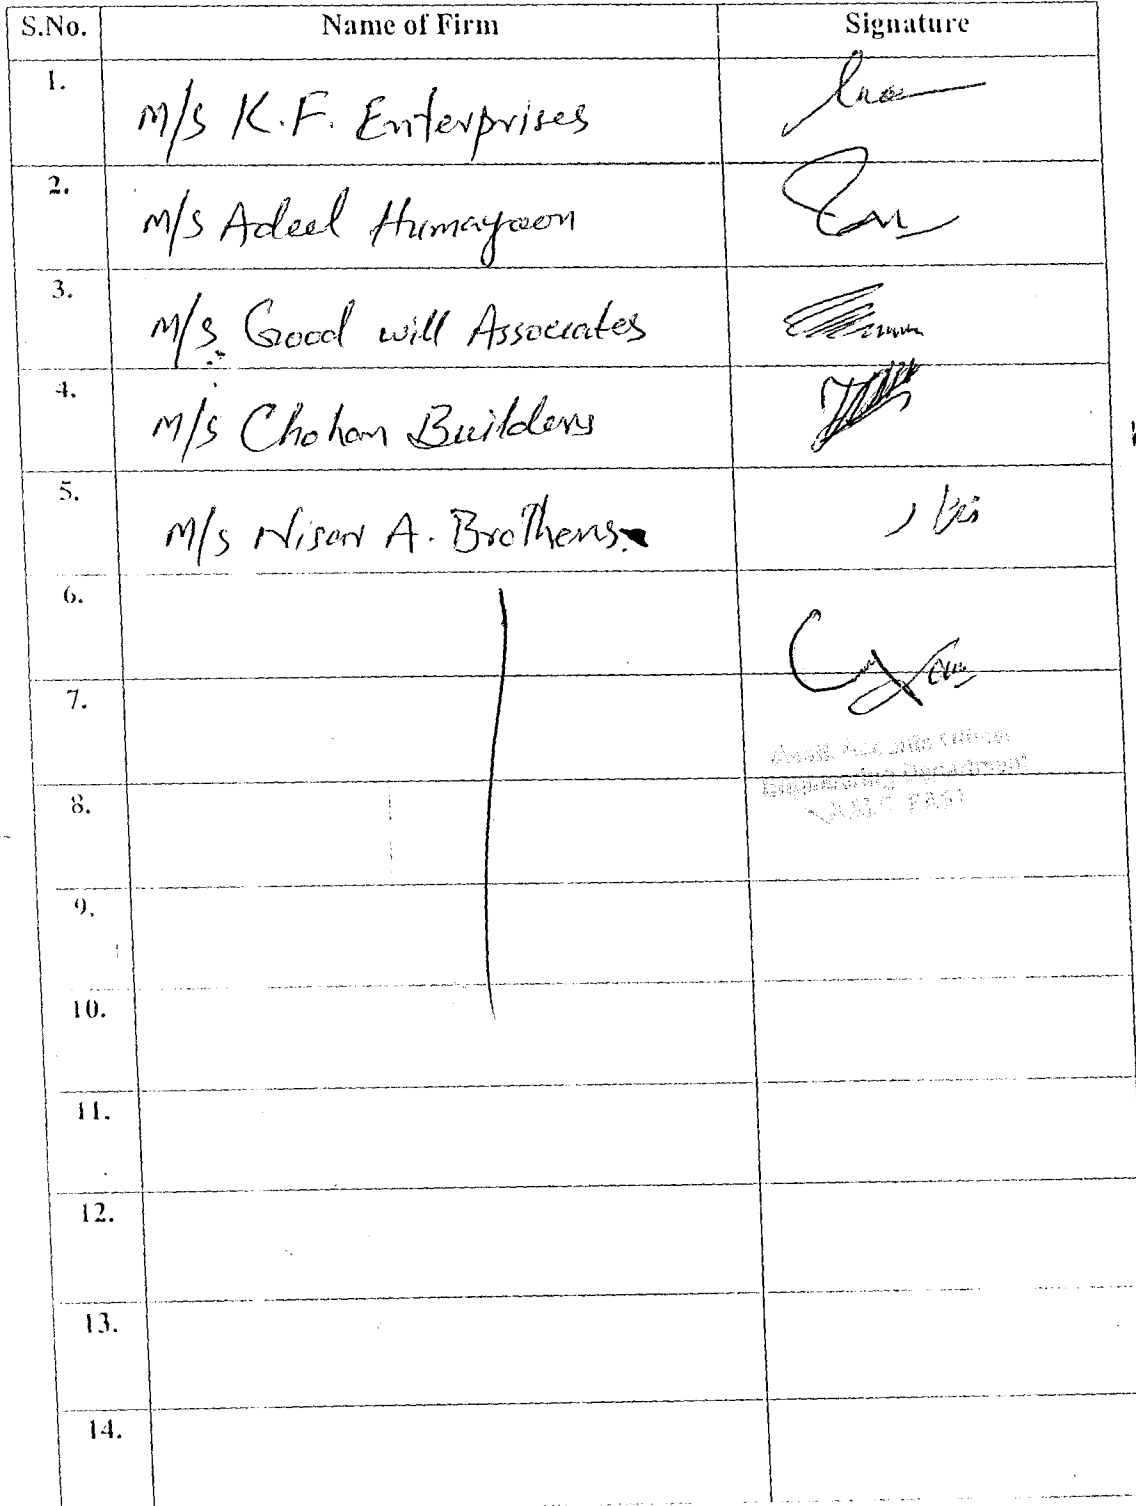 S.No. Name of Firm Signature
1. M/S K.F. Enterprises
2. M/S Adeel Humayoon
3. M/S Good will Associates
4. M/S Chohan Builders
5. M/S Nisar A. Brothers
6.
7.
Asstt. Accounts Officer
Engineering Department
8.
EAST
9.
10.
11.
12.
13.
14.